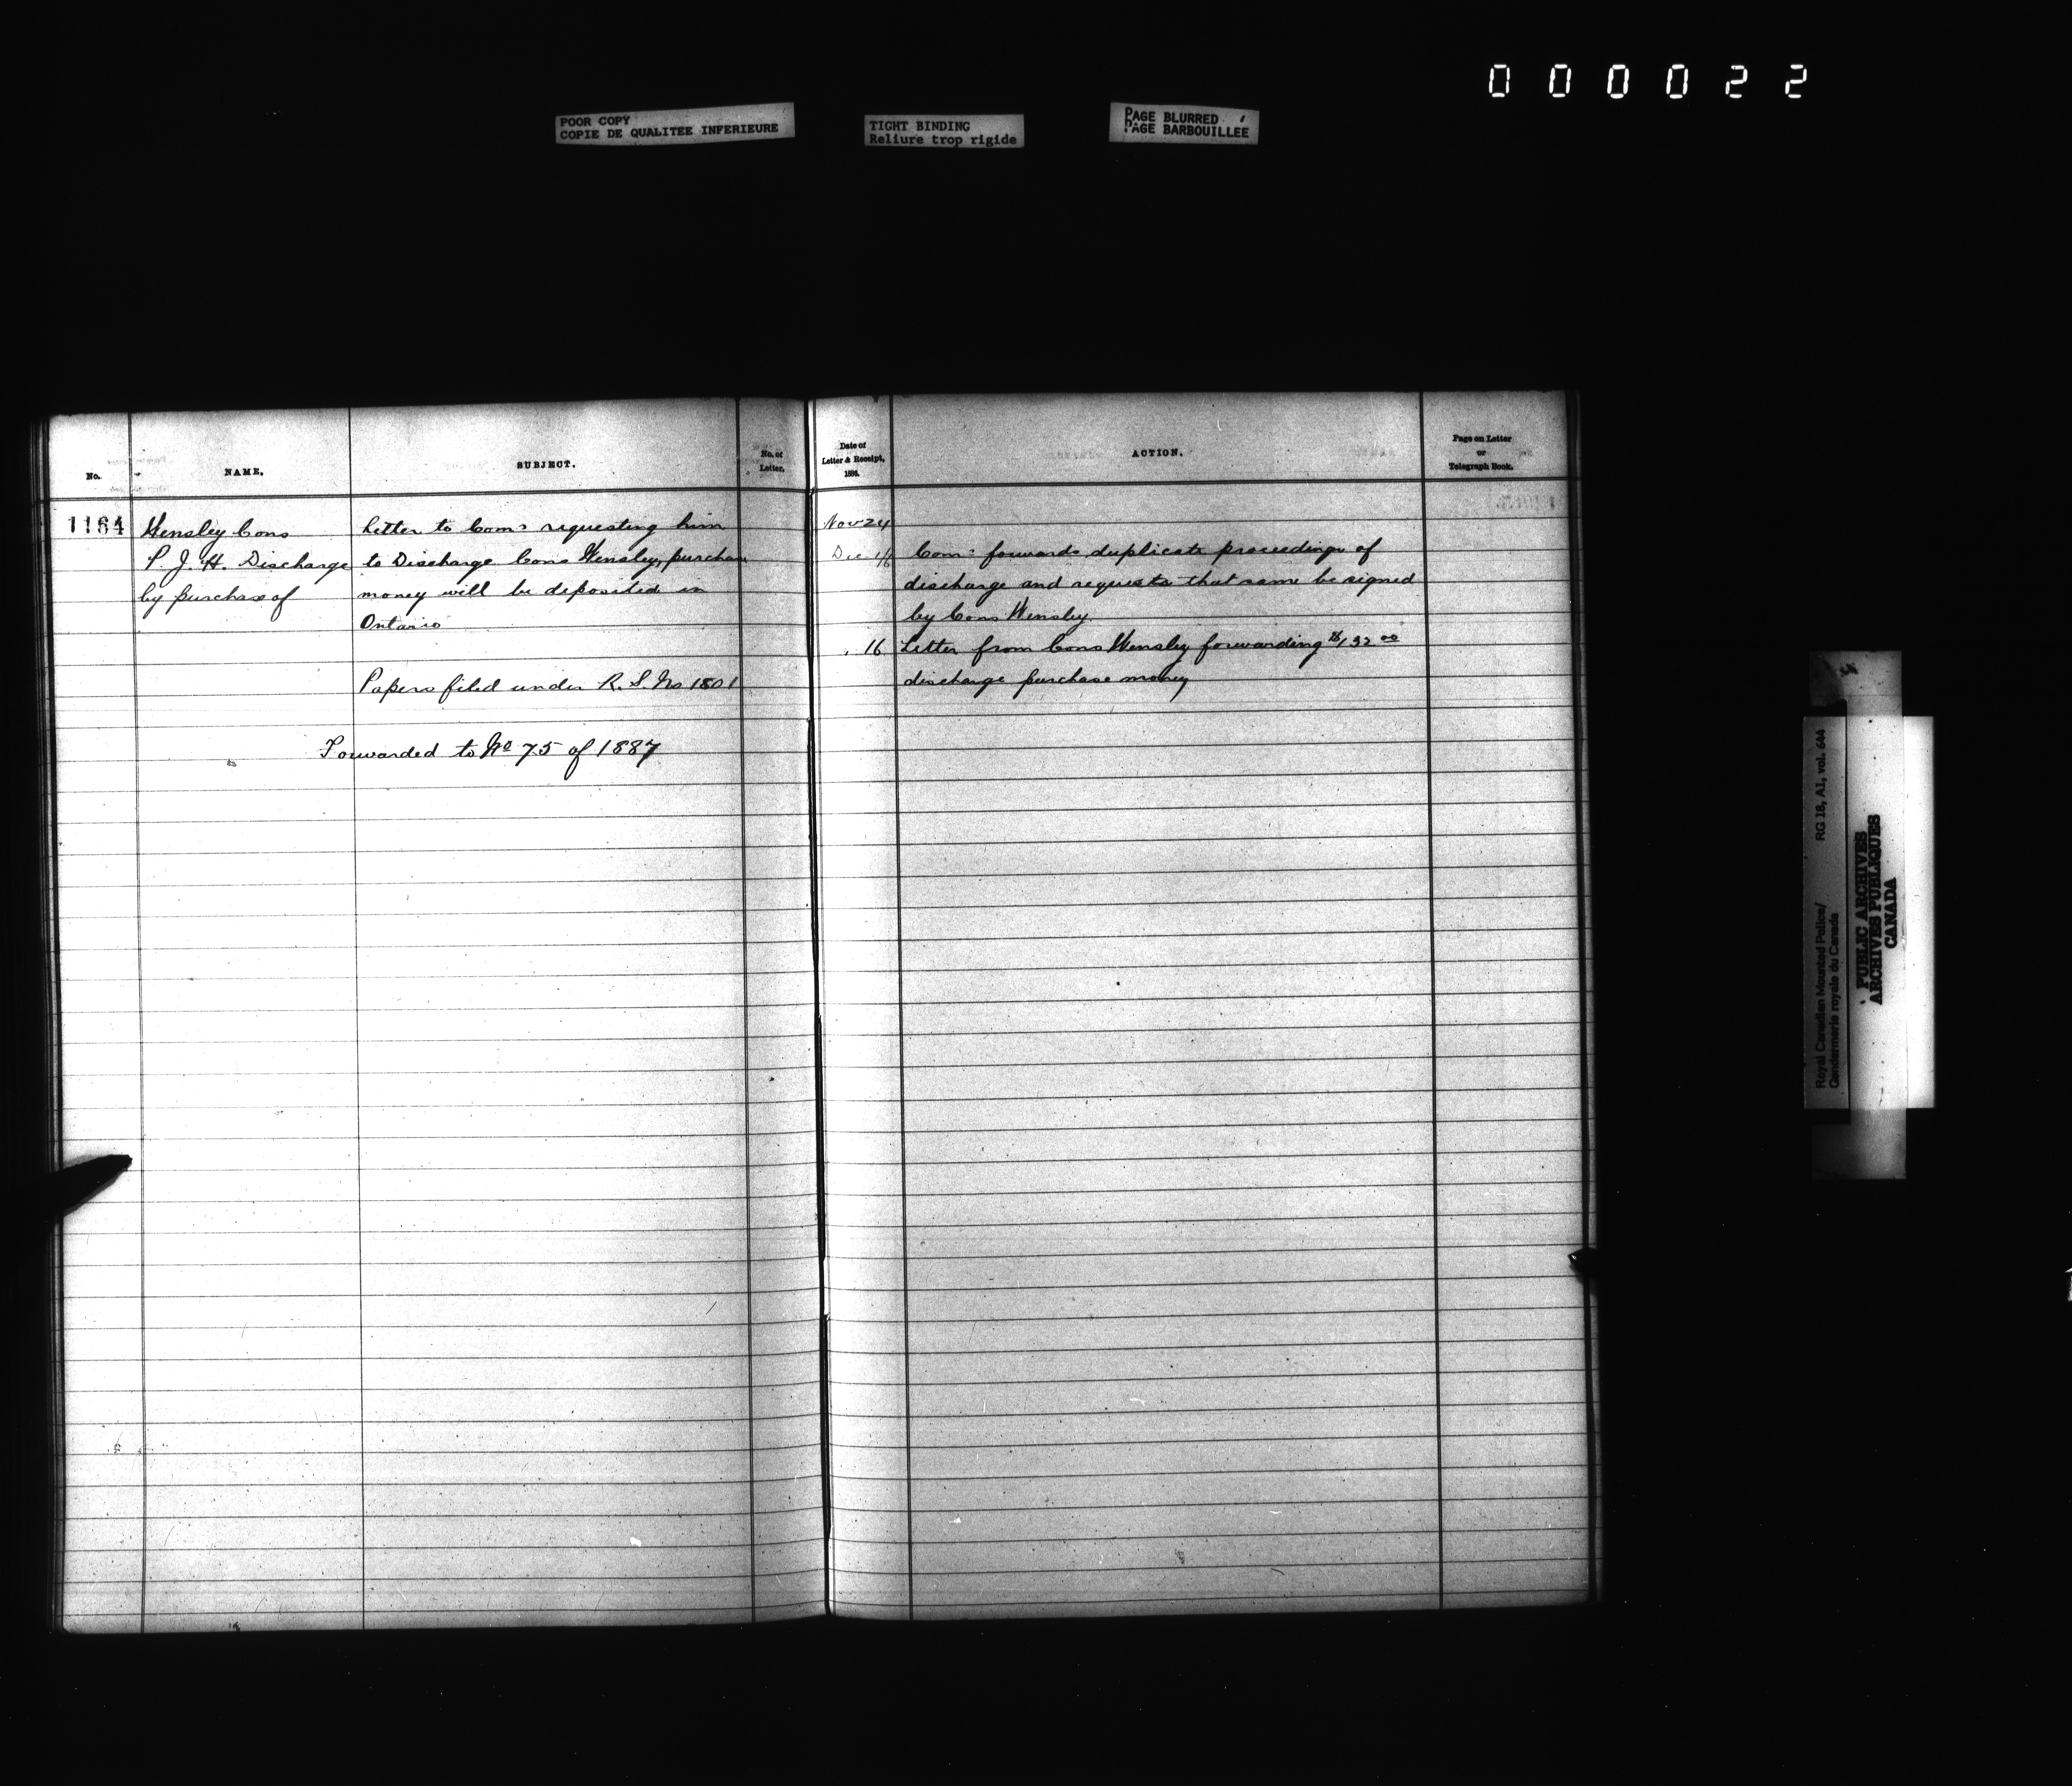 000022
POOR COPY
COPIE DE QUALITEE INFERIEURE
TIGHT BINDING
Reliure trop rigide
PAGE BLURRED
PAGE BARBOUILLEE
No.
NAME.
SUBJECT.
No. of
Letter.
Date of
Letter & Receipt,
1886.
ACTION.
Page on Letter
or
Telegraph Book.
1164
Hensley Cons
P. J. H. Discharge
by purchase of
Letter to Com: requesting him
to Discharge Cons Hensley, purchase
money will be deposited in
Ontario
Papers filed under R. S. No 1801
Forwarded to No 75 of 1887
Nov 24
Dec 16
Com: forwards duplicate proceedings of
discharge and requests that same be signed
by Cons Hensley
" 16
Letter from Cons Hensley forwarding $132 00
discharge purchase money
Royal Canadian Mounted Police/
Gendarmerie royale du Canada
RG 18, A1, vol. 644
PUBLIC ARCHIVES
ARCHIVES PUBLIQUES
CANADA